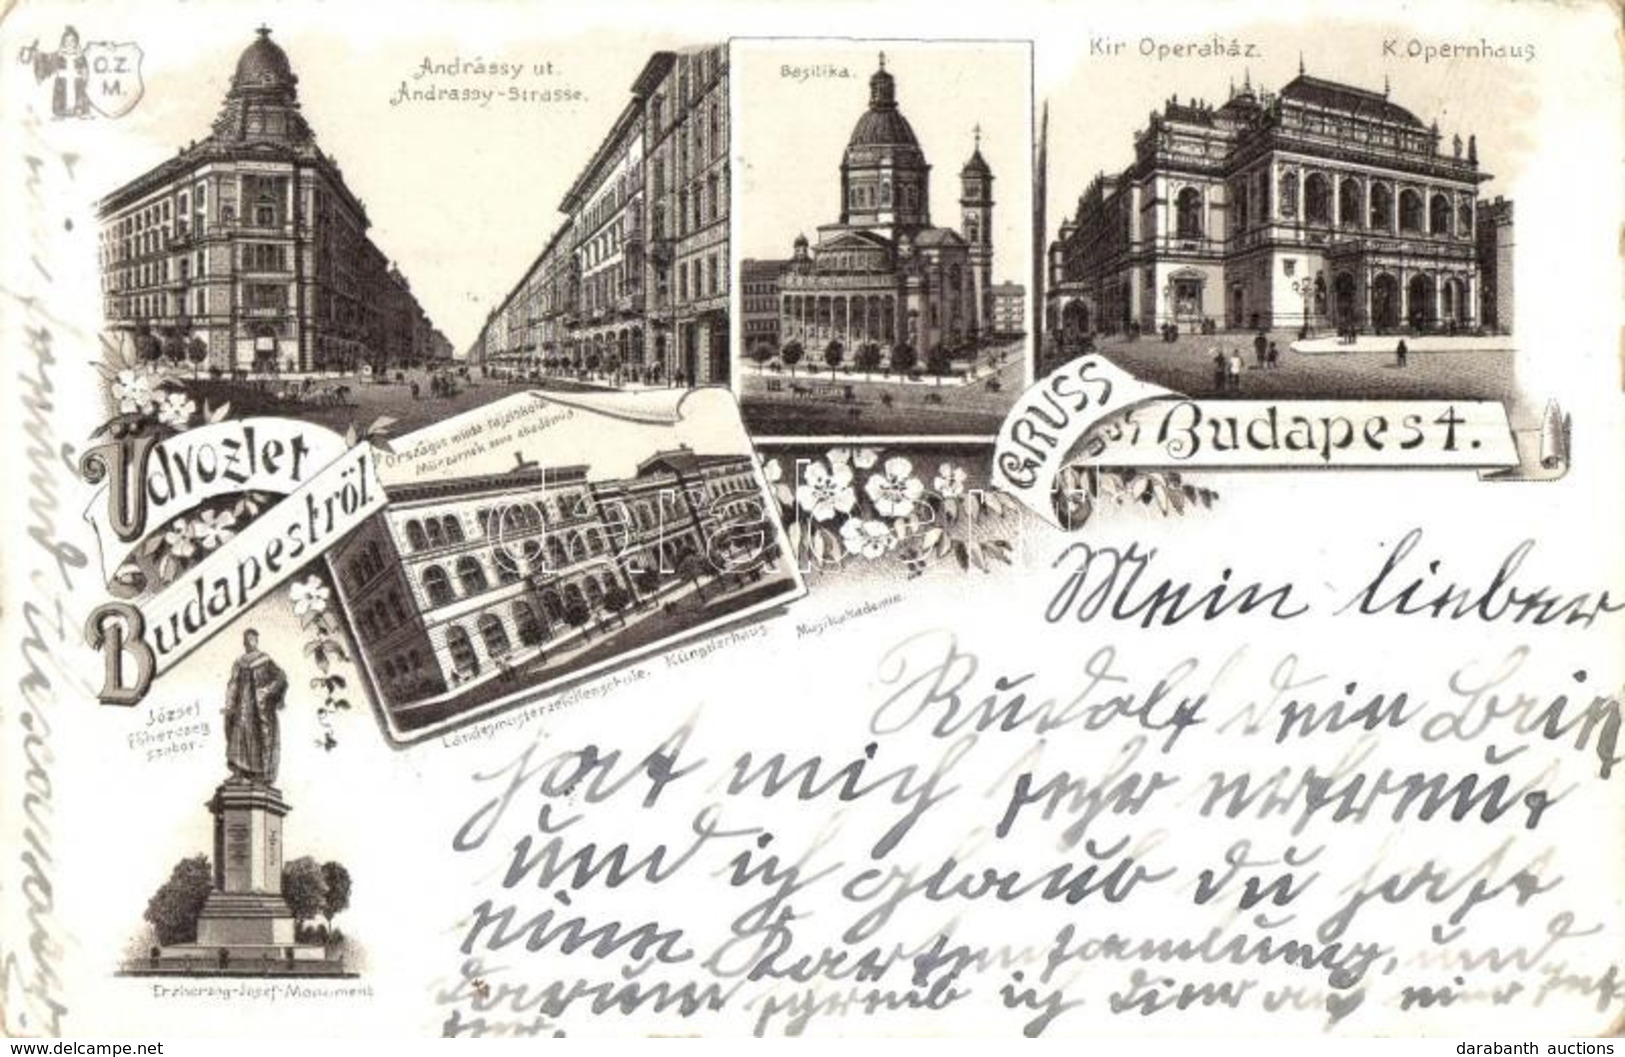 O.Z.
M.
Andrássy ut.
Andrassy-Strasse.
Basilika.
Kir Operaház. K. Opernhaus
Üdvözlet
Budapestról.
Országos minta rajziskola
akadémia
GRUSS
aus Budapest.
Landesmusterzeichenschule. Künstlerhaus. Musikakademie.
József
főherczeg
szobor.
Erzherzog-Josef-Monument
Mein lieber
Rudolf dein Brief
hat mich sehr erfreut
und ich glaub du hast
eine Kartensamlung, und
darum schreib ich dier auf einer
delcampe.net
darabanth auctions